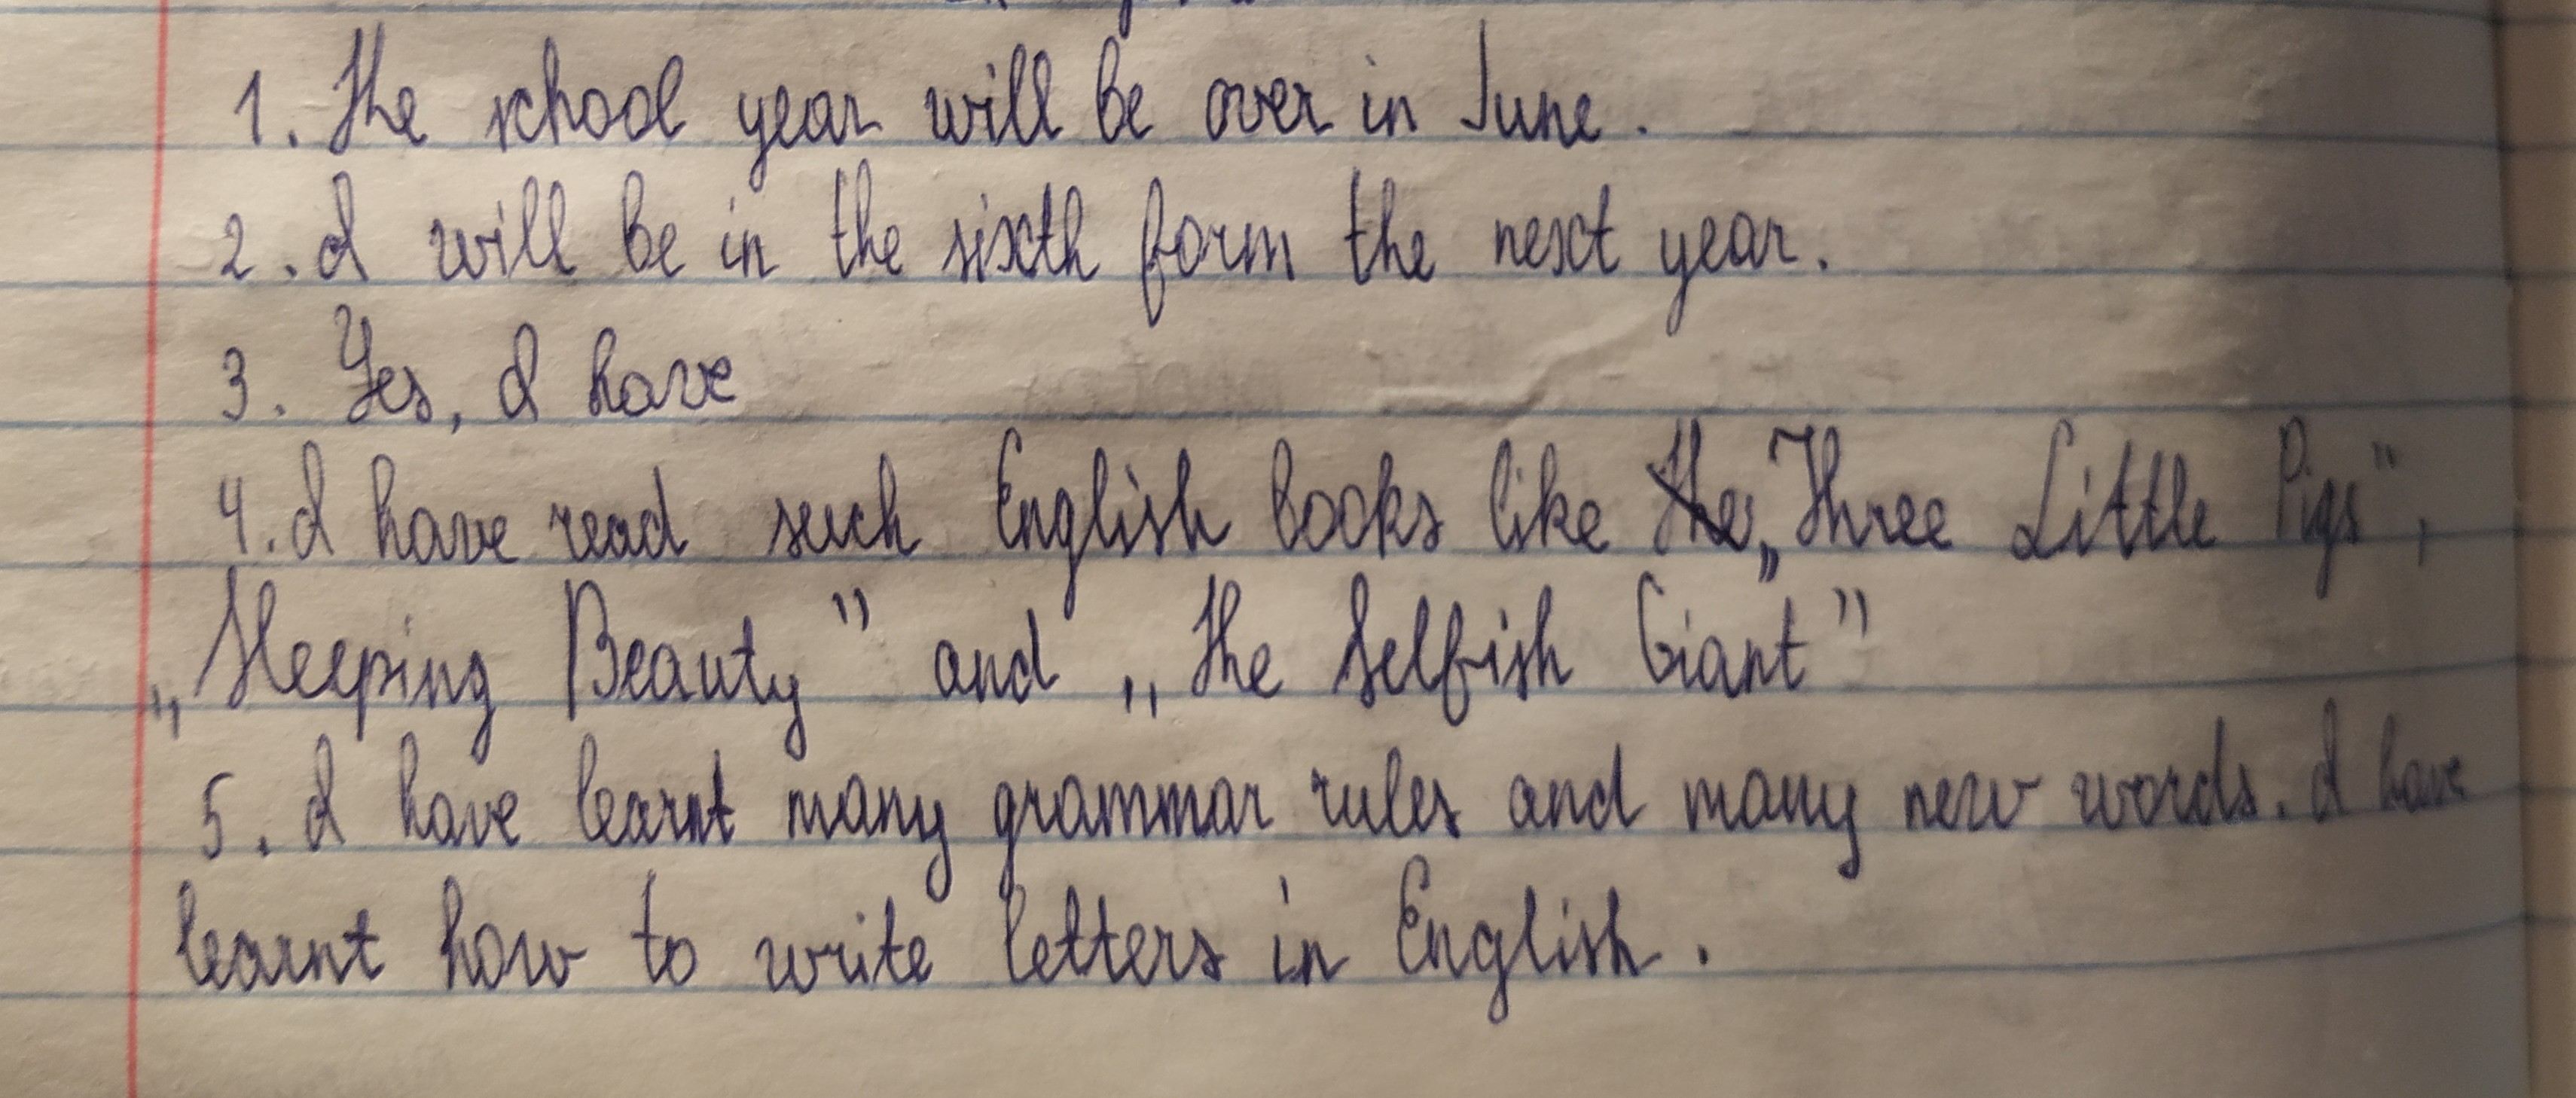 1. The school year will be over in June.
2. I will be in the sixth form the next year.
3. Yes, I have
4. I have read such English books like „Three Little Pigs",
„Sleeping Beauty" and „The Selfish Giant"
5. I have learnt many grammar rules and many new words. I have
learnt how to write letters in English.